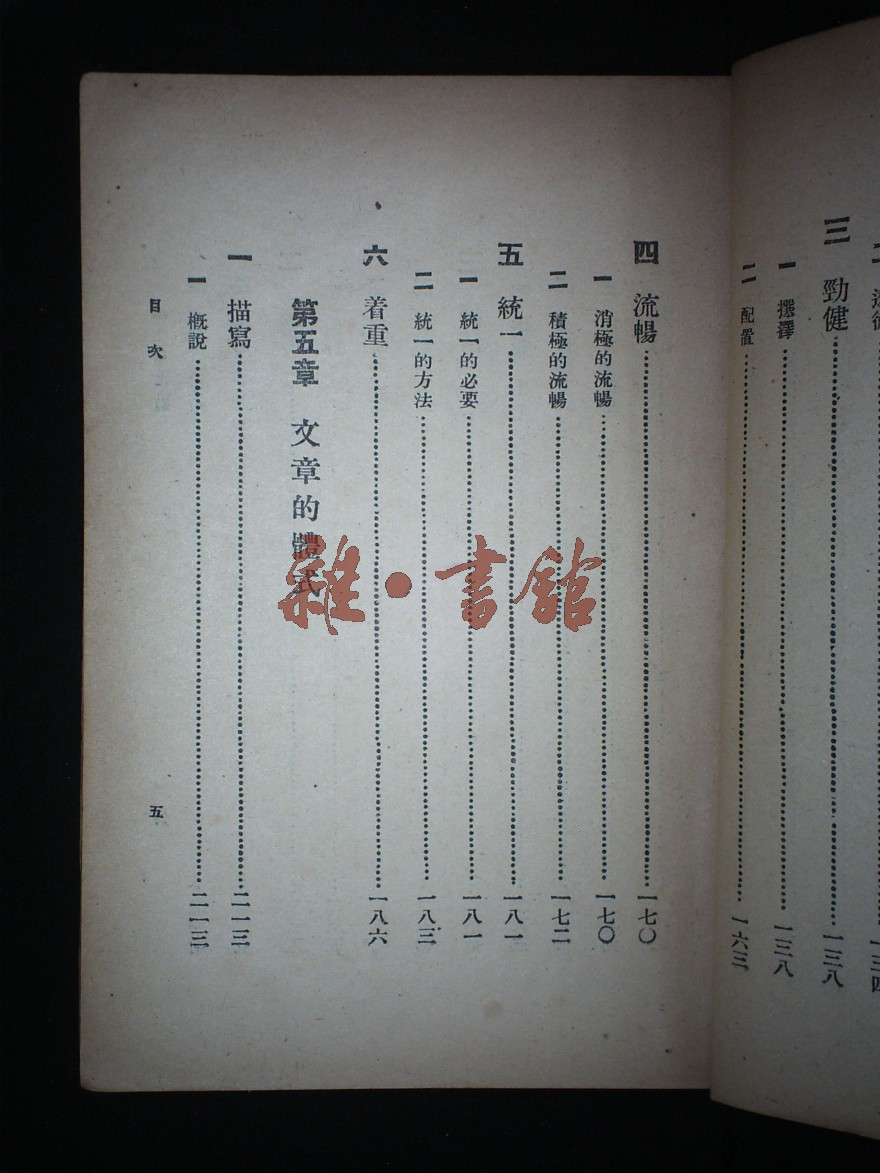 三 勁健……一三八
一 撰擇……一三八
二 配置……一六三
四 流暢……一七〇
一 消極的流暢……一七〇
二 積極的流暢……一七二
五 統一……一八一
一 統一的必要……一八一
二 統一的方法……一八三
六 着重……一八六
第五章 文章的體式
一 描寫……二一三
一 概說……二一三
目次
五
雜·書館